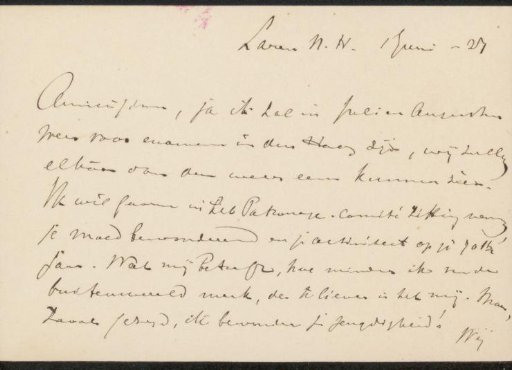 Laren N.H. 1 Juni - 27
Amice, ja ik zal in Juli en Augustus
weer voor examens in den Haag zijn, wij zullen
elkaar dan dan weer eens kunnen zien.
Ik wil gaarne in het Patronage-comité zitting nemen
je moed bewonderend en je activiteit op je
jaar. Wat mij betreft, hoe minder ik van de
buitenwereld merk, des te liever is het mij. Maar,
zooals gezegd, ik bewonder je jeugdigheid!
Wij